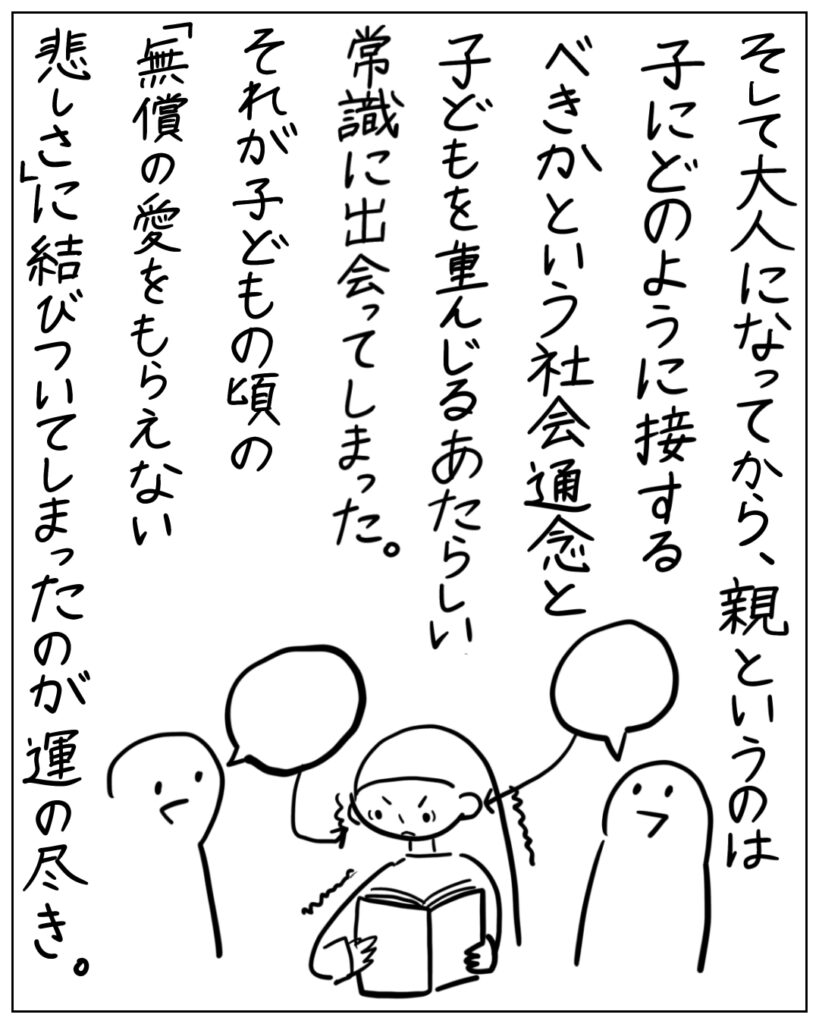 そして大人になってから、親というのは
子にどのように接する
べきかという社会通念と
子どもを重んじるあたらしい
常識に出会ってしまった。
それが子どもの頃の
「無償の愛をもらえない
悲しさ」に結びついてしまったのが運の尽き。